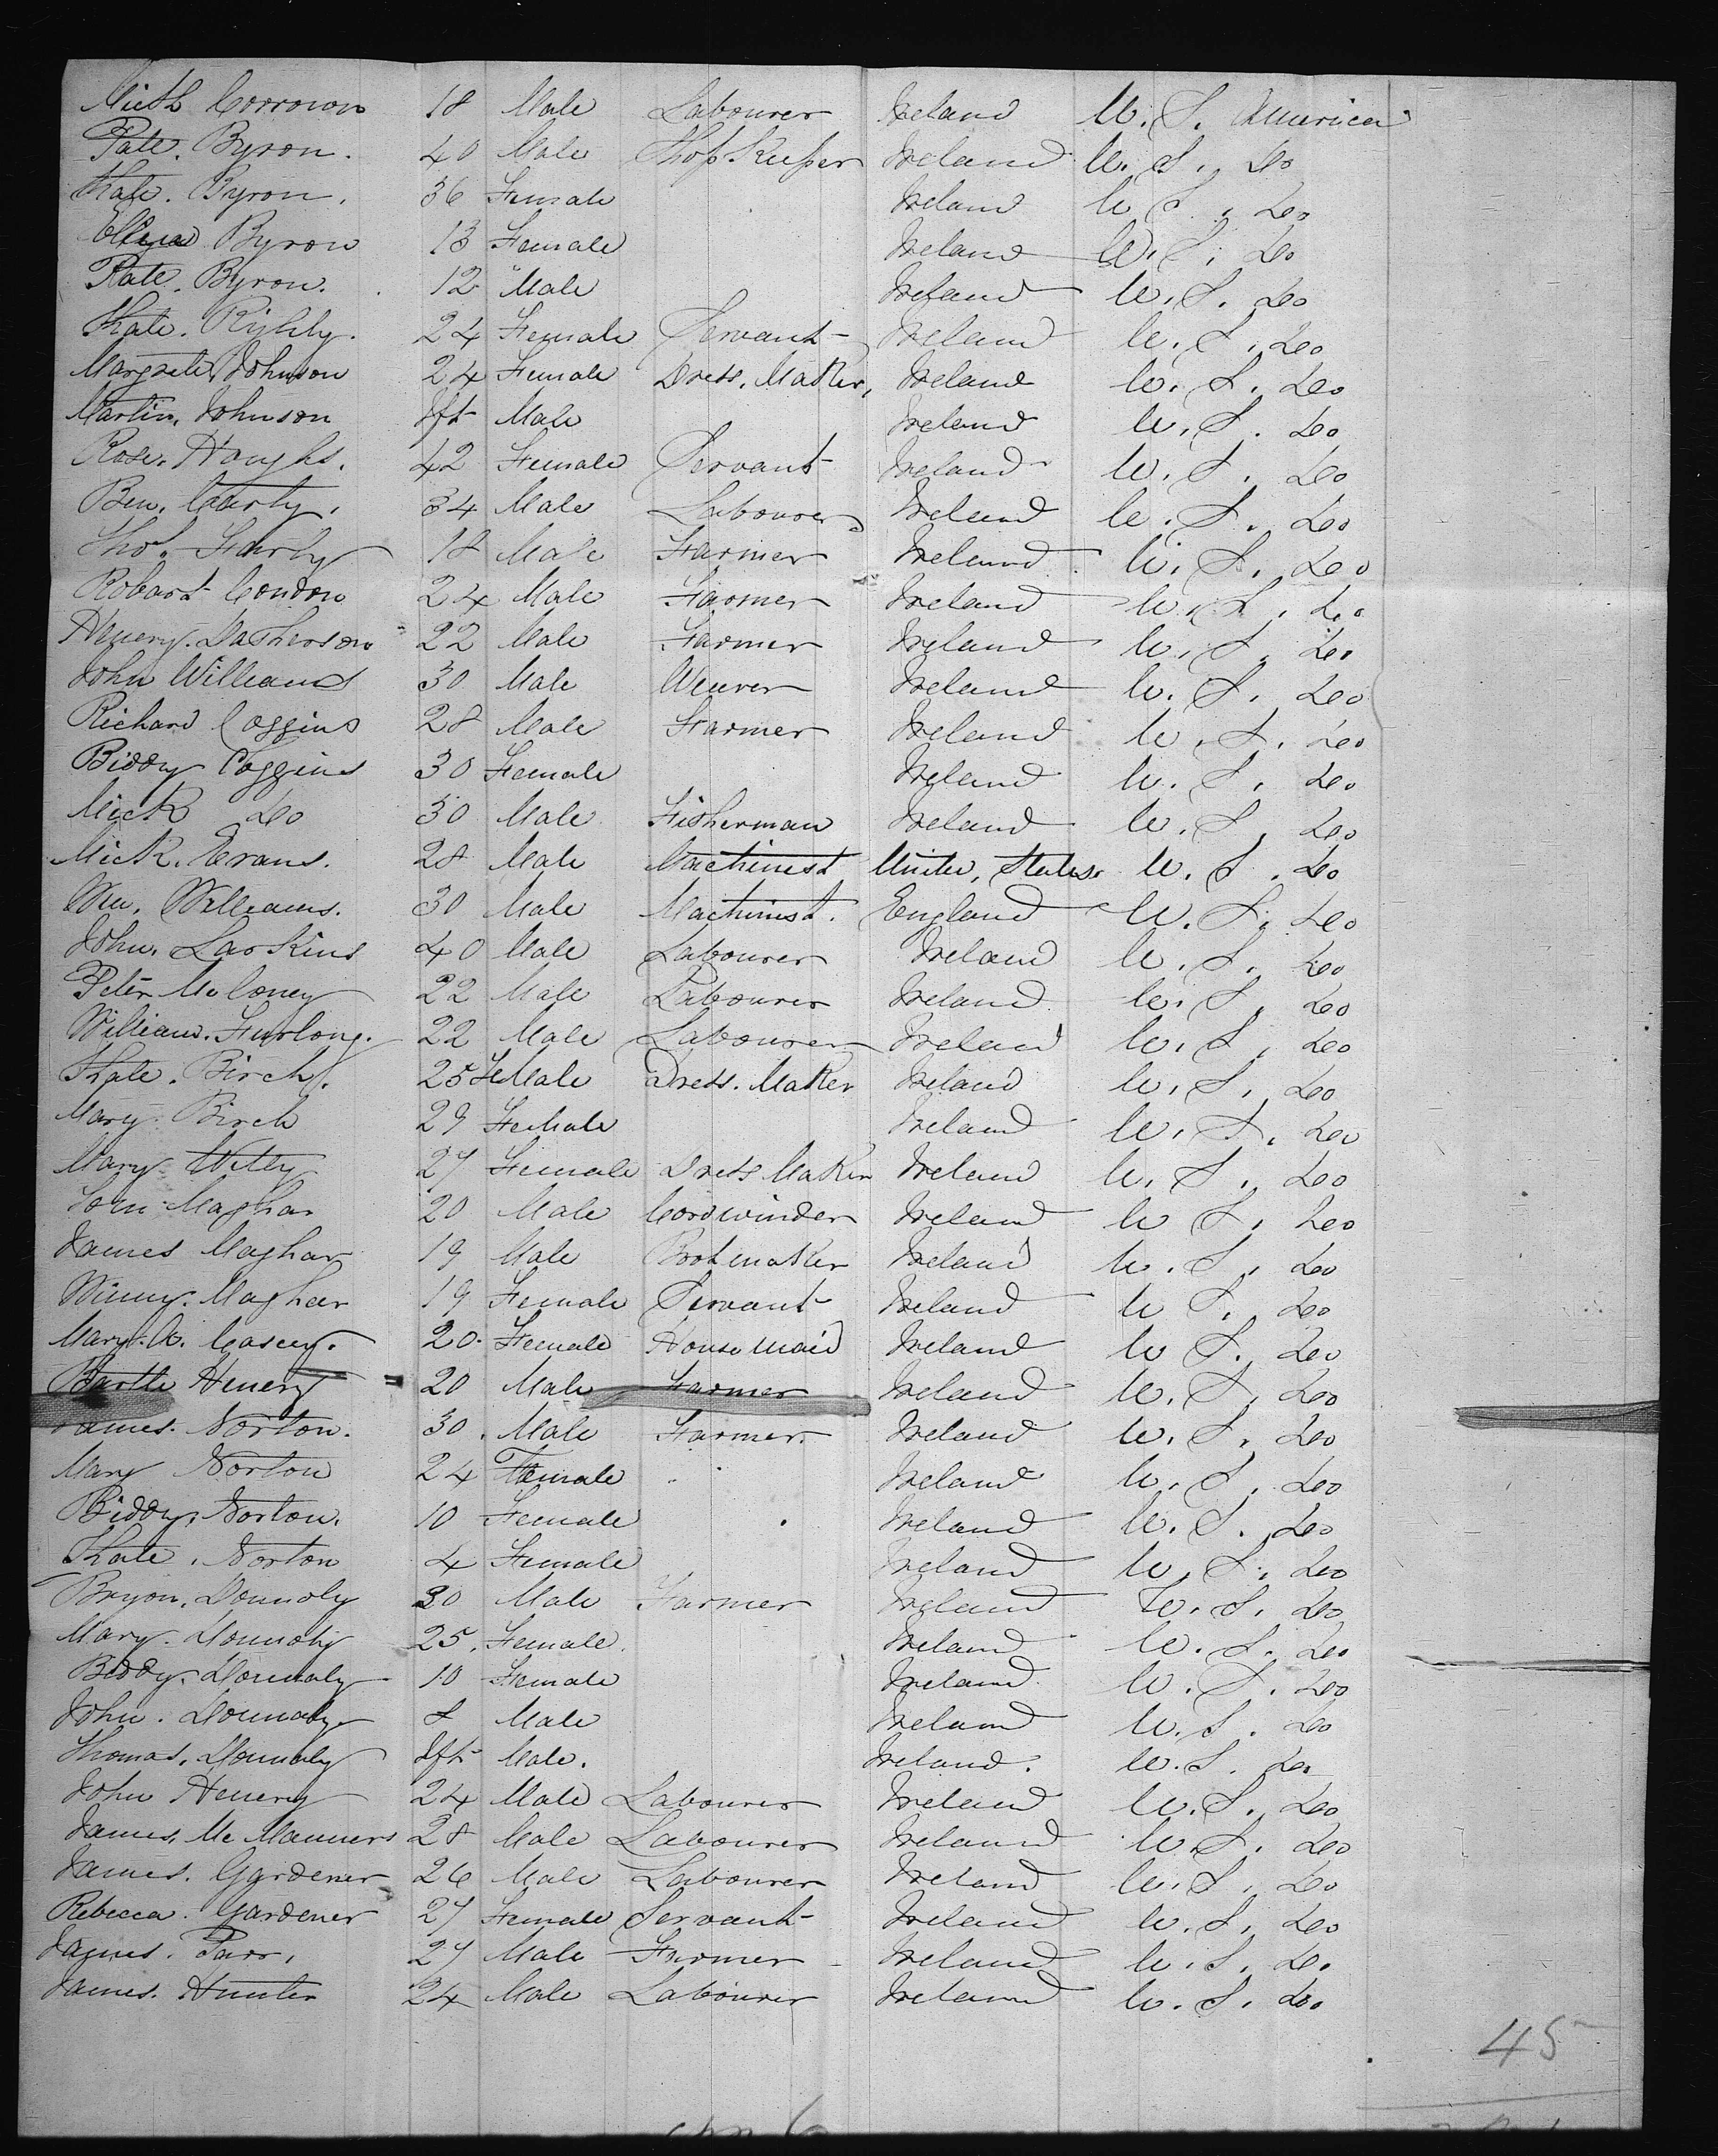 Mich Corrown 18 Male Labourer Ireland U. S. America
Pate. Byron. 40 Male Shop Keeper Ireland U. S. Do
Kate. Byron. 36 Female Ireland U S. Do
Byron 13 Female Ireland U. S. Do
Pate. Byron. 12 Male Ireland U. S. Do
Kate. Righly. 24 Female Servant Ireland U. S. Do
Margrete Johnson 24 Female Dress. Maker, Ireland U. S. Do
Martin. Johnson Ift Male Ireland U. S. Do
Rose. Houghs. 42 Female Servant Ireland U. S. Do
Ben. Carty. 34 Male Labourer Ireland U. S. Do
Thos. Farly 18 Male Farmer Ireland U. S. Do
Robart Condon 24 Male Farmer Ireland U. S. Do
Henery. Dasherson 22 Male Farmer Ireland U. S. Do
John Williams 30 Male Weaver Ireland U. S. Do
Richard Coggins 28 Male Farmer Ireland U. S. Do
Biddy Coggins 30 Female Ireland U. S. Do
Mick Do 30 Male Fisherman Ireland U. S. Do
Mick. Evans. 28 Male Machinest United, States. U. S. Do
Wm. Williams. 30 Male Machinest. England U. S. Do
John. Larkins 40 Male Labourer Ireland U. S. Do
Peter Meloney 22 Male Labourer Ireland U. S. Do
William. Furlong. 22 Male Labourer Ireland U. S. Do
Kate. Birch. 25 FeMale Dress. Maker Ireland U. S. Do
Mary Birch 29 Female Ireland U. S. Do
Mary Witty 27 Female Dress Maker Ireland U. S. Do
Maghar 20 Male Cordwinder Ireland U S. Do
James Maghar 19 Male Bootmaker Ireland U. S. Do
Winny. Maghar 19 Female Servant Ireland U S. Do
Mary. A. Casey. 20. Female House maid Ireland U S. Do
Bartle Henery 20 Male Farmer Ireland U. S. Do
James. Norton. 30. Male Farmer. Ireland U. S. Do
Mary Norton 24 Female Ireland U. S. Do
Biddy. Norton. 10 Female Ireland U. S. Do
Kate. Norton 4 Female Ireland U. S. Do
Bryon. Donnoly 30 Male Farmer Ireland U. S. Do
Mary. Donnoly 25. Female. Ireland U. S. Do
Biddy. Donnaly 10 Female Ireland U. S. Do
John. Donnaly 8 Male Ireland U. S. Do
Thomas. Donnaly Ift Male. Ireland. U. S. Do
John Henery 24 Male Labourer Ireland U. S. Do
James. Mc Manners 28 Male Labourer Ireland U. S. Do
James. Gardener 26 Male Labourer Ireland U. S. Do
Rebecca. Gardener 27 Female Servant Ireland U. S. Do
James. Parr. 27 Male Farmer Ireland U. S. Do
James. Hunter 24 Male Labourer Ireland U. S. Do
45